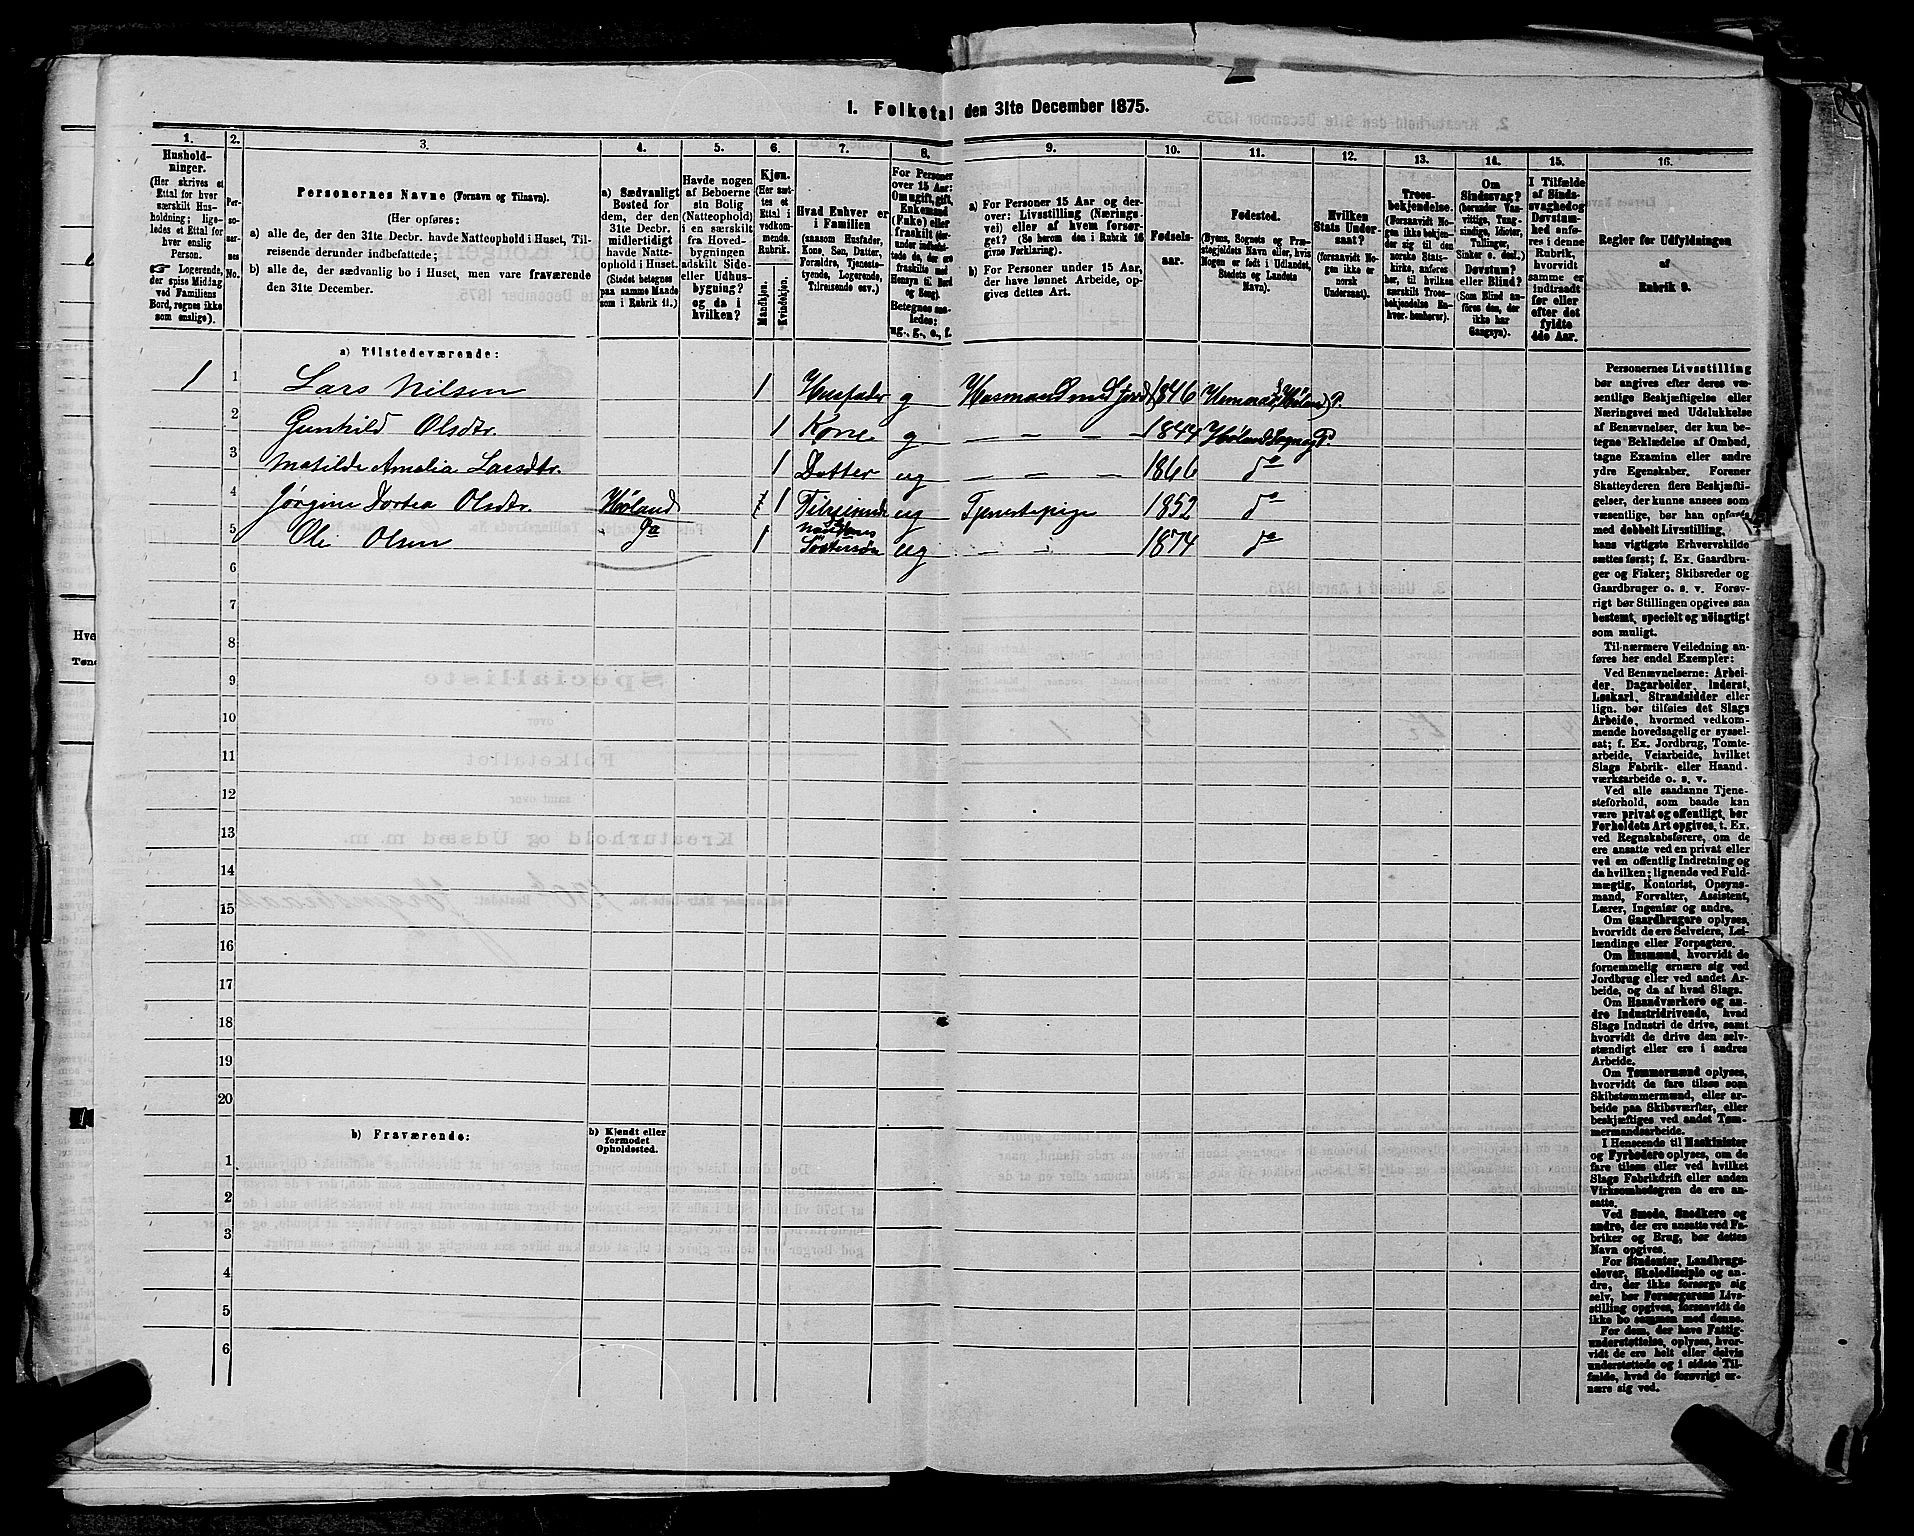 I. Folketal den 31te December 1875.
1. 2. 3. 4. 5. 6. 7. 8. 9. 10. 11. 12. 13. 14. 15. 16.
Husholdninger.
(Her skrives et Ettal for hver særskilt Husholdning; ligeledes et Ettal for hver enslig Person.
☞ Logerende, der spise Middag ved Familiens Bord, regnes ikke som enslige).
Personernes No.
Personernes Navne (Fornavn og Tilnavn).
(Her opføres:
a) alle de, der den 31te Decbr. havde Natteophold i Huset, Tilreisende derunder indbefattede;
b) alle de, der sædvanlig bo i Huset, men vare fraværende den 31te December.
a) Sædvanligt Bosted for dem, der den 31te Decbr. midlertidigt havde Natteophold i Huset. (Stedet betegnes paa samme Maade som i Rubrik 11.)
Havde nogen af Beboerne sin Bolig (Natteophold) i en særskilt fra Hovedbygningen adskilt Side- eller Udhusbygning? og da i hvilken?
Kjøn. (Her sættes et Ettal i vedkommende Rubrik.
Mandkjøn. Kvindekjøn.
Hvad Enhver er i Familien
(saasom Husfader, Kone, Søn, Datter, Forældre, Tjenestetyende, Logerende, Tilreisende osv.)
For Personer over 15 Aar: Om ugift, gift, Enkemand (Enke) eller fraskilt
Betegnes saaledes: ug., g., e., f.
a) For Personer 15 Aar og derover: Livsstilling (Næringsvei) eller af hvem forsørget? (Se herom den i Rubrik 16 givne Forklaring).
b) For Personer under 15 Aar, der have lønnet Arbeide, opgives dettes Art.
Fødselsaar.
Fødested.
(Byens, Sognets og Præstegjeldets Navn eller, hvis Nogen er født i Udlandet, Stedets og Landets Navn).
Hvilken Stats Undersaat?
(forsaavidt Nogen ikke er norsk Undersaat).
Troesbekjendelse.
(Forsaavidt Nogen ikke bekjender sig til den norske Statskirke, anføres her, til hvilken særskilt Troesbekjendelse Enhver henhører).
Om Sindssvag? (herunder Vanvittige, Tungsindige, Idioter, Tullinger, Sinker o. desl.) Døvstum? eller Blind? (Som Blind anføres den, der ikke har Gangsyn).
I Tilfælde af Sindssvaghed og Døvstumhed anføres i denne Rubrik, hvorvidt samme er indtraadt før eller efter det fyldte 4de Aar.
Regler for Udfyldningen af Rubrik 9.
a) Tilstedeværende:
1 1 Lars Nilsen 1 Husfader g Husmand med Jord 1846 Hemnæs, Høland P.
2 Gunhild Olsdtr. 1 Kone g — — — 1844 Høland Sogn og P.
3 Matilde Amalia Larsdtr. 1 Datter ug — — — 1866 do
4 Jørgine Dortea Olsdtr. Høland 1 Tilreisende ug Tjenestepige 1852 do
5 Ole Olsen do 1 Søstersøn ug — — 1874 do
6
7
8
9
10
11
12
13
14
15
16
17
18
19
20
b) Fraværende:
b) Kjendt eller formodet Opholdssted.
1
2
3
4
5
6
Personernes Livsstilling bør angives efter deres væsentlige Beskjæftigelse eller Næringsvei med Udelukkelse af Benævnelser, der kun betegne Beklædelse af Ombud, tagne Examina eller andre ydre Egenskaber. Forener Skatteyderen flere Beskjæftigelser, der kunne ansees som væsentlige, bør han opføres med dobbelt Livsstilling, hans vigtigste Erhvervskilde sættes først; f. Ex. Gaardbruger og Fisker; Skibsreder og Gaardbruger o. s. v. Forøvrigt bør Stillingen opgives saa bestemt, specielt og nøiagtigt som muligt.
Til nærmere Veiledning anføres her endel Exempler:
Ved Benævnelserne: Arbeider, Dagarbeider, Inderst, Løskarl, Strandsidder eller lign. bør tilføies det Slags Arbeide, hvormed vedkommende hovedsagelig er sysselsat; f. Ex. Jordbrug, Tomtearbeide, Veiarbeide, hvilket Slags Fabrik- eller Haandværksarbeide o. s. v.
Ved alle saadanne Tjenesteforhold, som baade kan være privat og offentligt, bør Forholdets Art opgives, t. Ex. ved Regnskabsførere, om de ere ansatte ved en privat eller ved en offentlig Indretning og da hvilken; lignende ved Fuldmægtig, Kontorist, Opsynsmand, Forvalter, Assistent, Lærer, Ingeniør og andre.
Om Gaardbrugere oplyses, hvorvidt de ere Selveiere, Leilændinge eller Forpagtere.
Om Husmænd, hvorvidt de fornemmelig ernære sig ved Jordbrug eller ved andet Arbeide, og da af hvad Slags.
Om Haandværkere og andre Industridrivende, hvad Slags Industri de drive, samt hvorvidt de drive den selvstændigt eller ere i andres Arbeide.
Om Tømmermænd oplyses, hvorvidt de fare tilsøs som Skibstømmermænd, eller arbeide paa Skibsværfter, eller beskjæftiges ved andet Tømmermandsarbeide.
I Henseende til Maskinister og Fyrbødere oplyses, om de fare tilsøs eller ved hvilket Slags Fabrikdrift eller anden Virksomhedsgren de ere ansatte.
Ved Smede, Snedkere og andre, der ere ansatte ved Fabriker og Brug, bør dettes Navn opgives.
For Studenter, Landbrugselever, Skoledisciple og andre, der ikke forsørge sig selv, bør Forsørgerens Livsstilling opgives, forsaavidt de ikke bo sammen med denne.
For dem, der have Fattigunderstøttelse, oplyses, hvorvidt de ere helt eller delvis understøttede og i sidste Tilfælde, hvad de forøvrigt ernære sig ved.